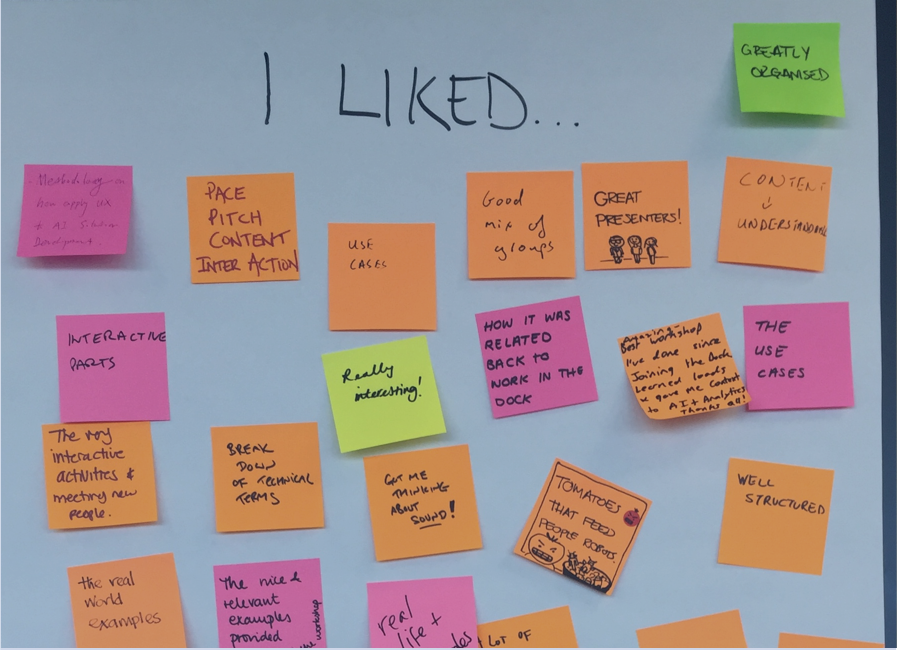 I LIKED...
GREATLY
ORGANISED
Methodology on
how apply UX
to AI Solution
Development.
PACE
PITCH
CONTENT
INTERACTION
USE
CASES
Good
mix of
groups
GREAT
PRESENTERS!
CONTENT
UNDERSTANDABLE
INTERACTIVE
PARTS
Really
interesting!
HOW IT WAS
RELATED
BACK TO
WORK IN THE
DOCK
Amazing -
best workshop
I've done since
Joining the Dock
Learned loads
& gave me context
to AI + Analytics
Thanks all!
THE
USE
CASES
The very
interactive
activities &
meeting new
people.
BREAK
DOWN
OF TECHNICAL
TERMS
GOT ME
THINKING
ABOUT
SOUND!
TOMATOES
THAT FEED
PEOPLE ROBOTS.
WELL
STRUCTURED
the real
world
examples
The nice &
relevant
examples
provided
workshop
real
life +
LOT OF